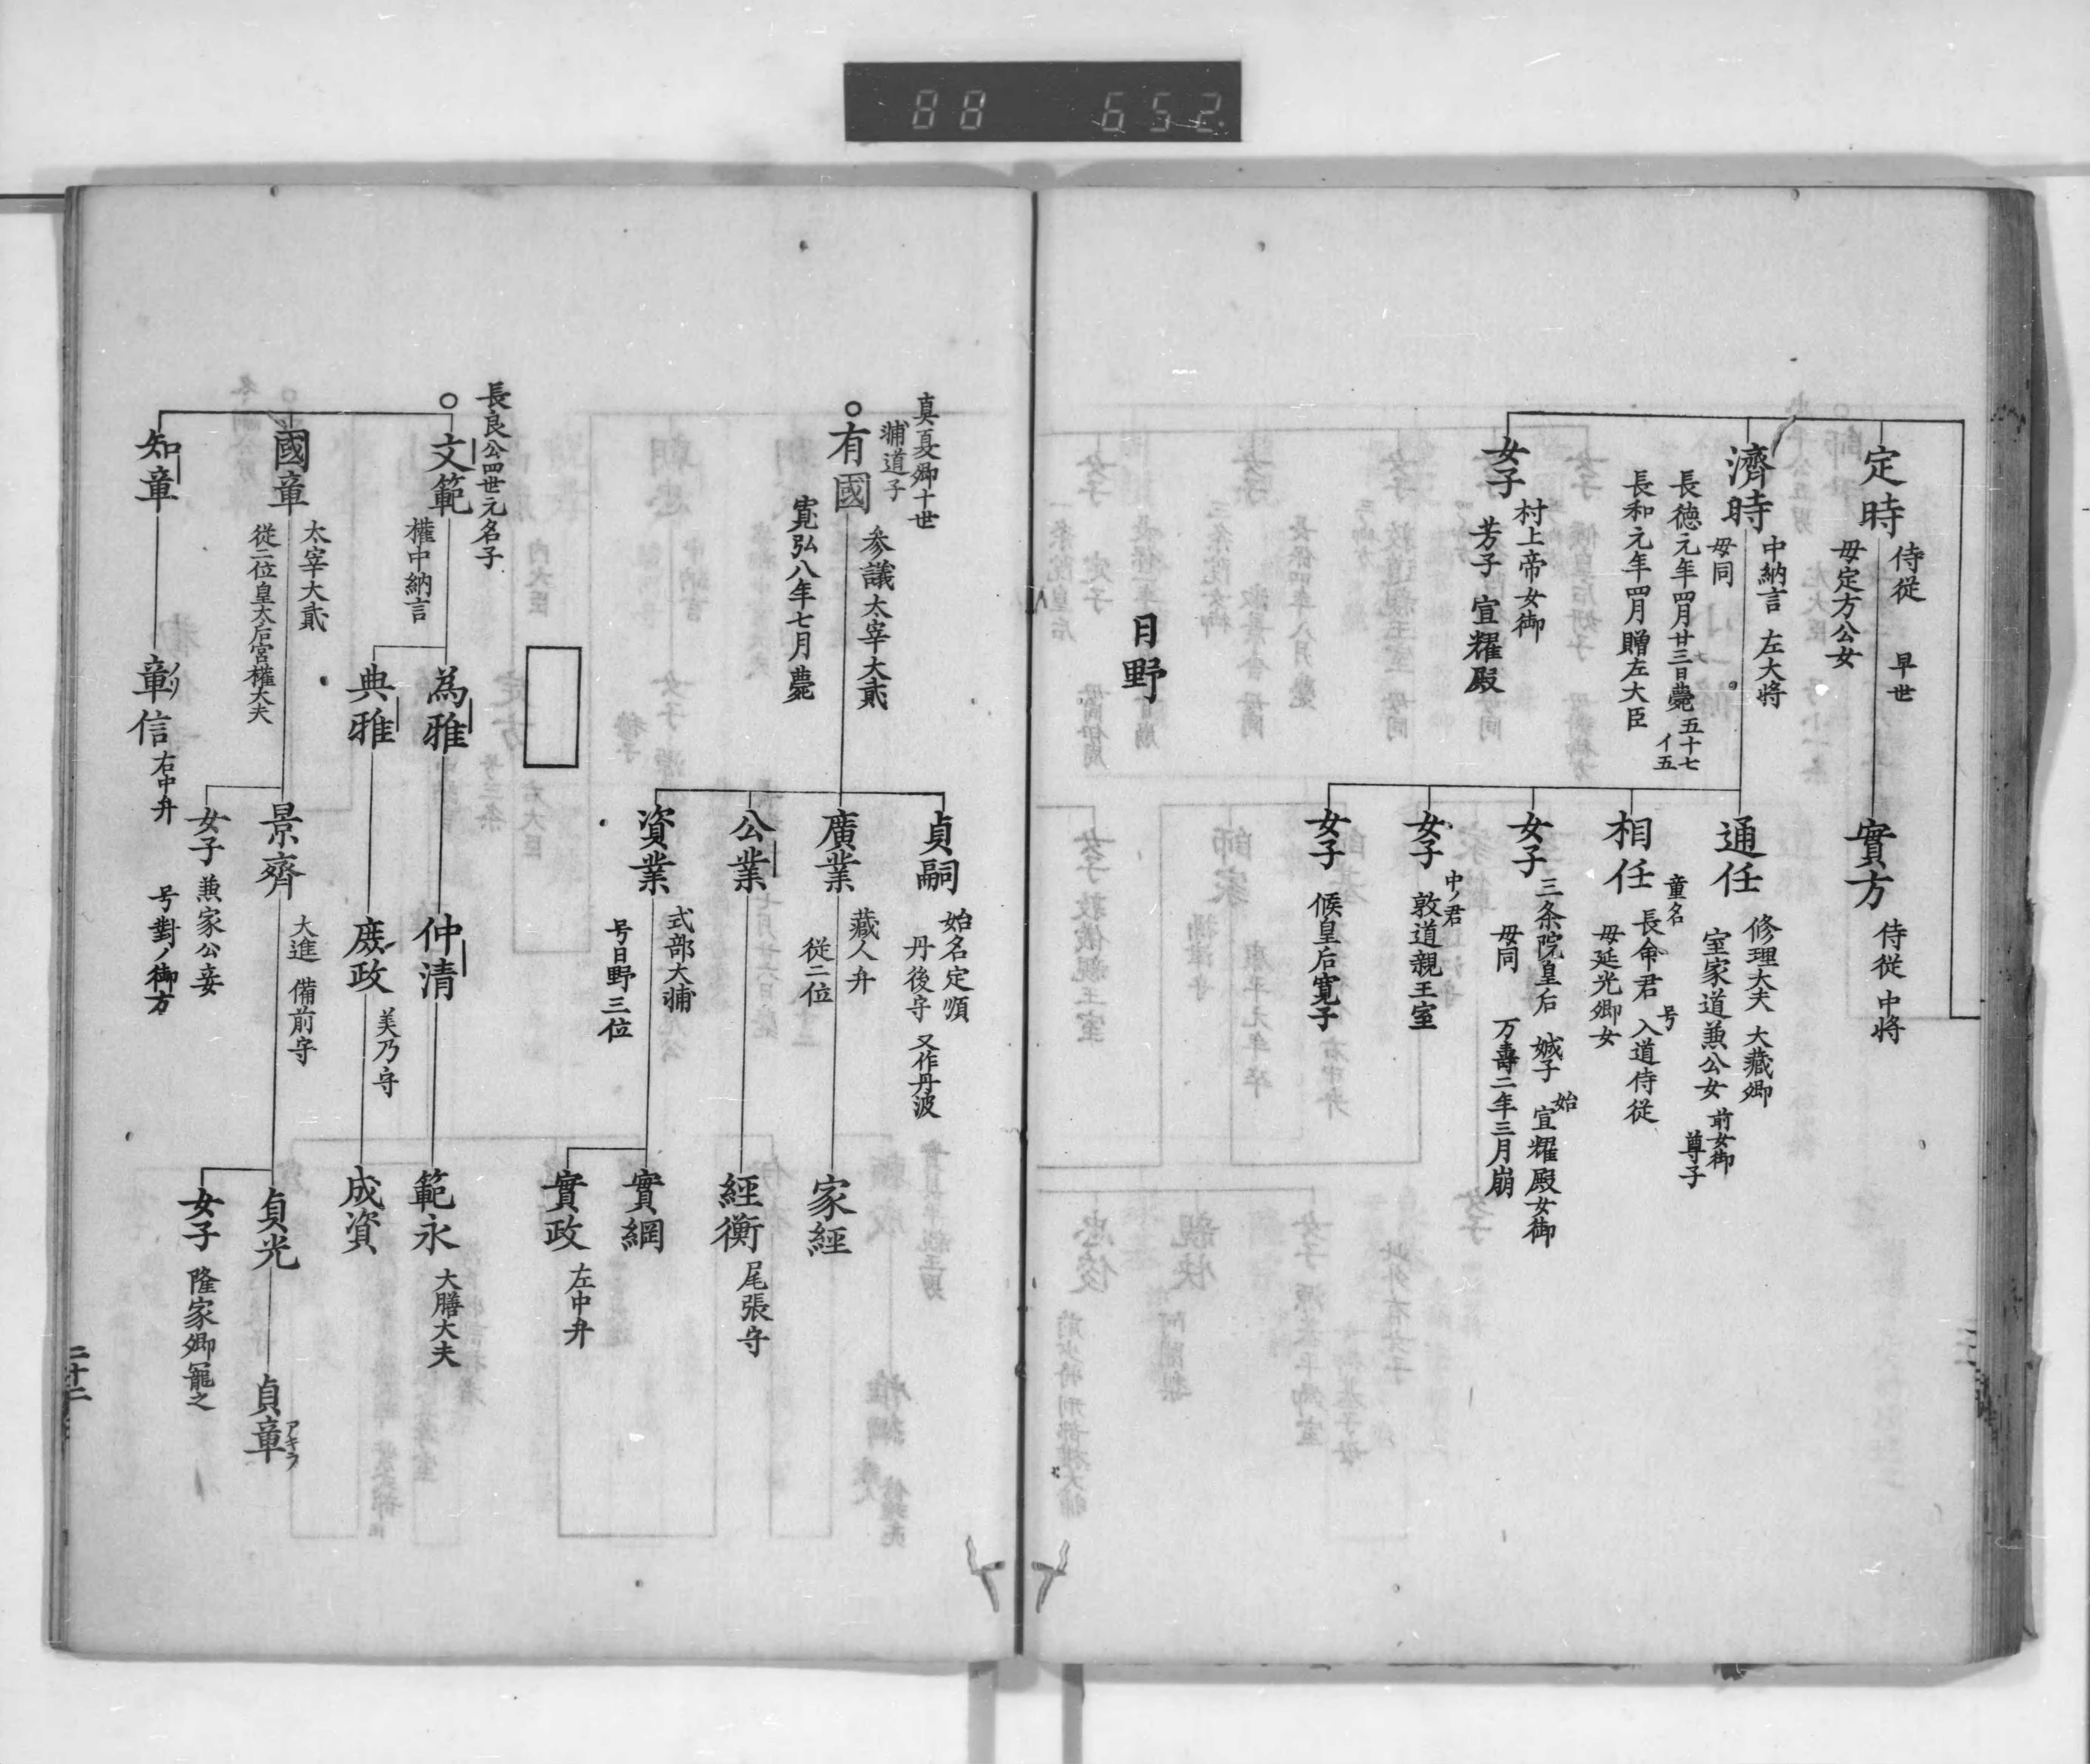 88 652
定時
侍従 早世
母定方公女
實方
侍従 中将
濟時
中納言 左大将
母同
長徳元年四月廿三日薨 五十七
イ五
長和元年四月贈左大臣
通任
修理大夫 大藏卿
室家道兼公女 前女御
尊子
相任
童名
長命君 号入道侍従
母延光卿女
女子
三条院皇后 娍子 始宣耀殿女御
母同 万壽二年三月崩
女子
中ノ君
敦道親王室
女子
候皇后寛子
女子
村上帝女御
芳子 宣耀殿
日野
真夏卿十世
輔道子
有國
参議太宰大貳
寛弘八年七月薨
貞嗣
始名定順
丹後守 又作丹波
廣業
藏人弁
従二位
家經
公業
經衡
尾張守
資業
式部大輔
号日野三位
實綱
實政
左中弁
長良公四世元名子
文範
權中納言
為雅
仲清
範永
大膳大夫
典雅
美乃守
成資
國章
太宰大貳
従二位皇太后宮權大夫
景齊
大進 備前守
貞光
貞章
アキラ
女子
隆家卿寵之
女子
兼家公妾
号對ノ御方
知章
章信
ノリ
右中弁
二十二